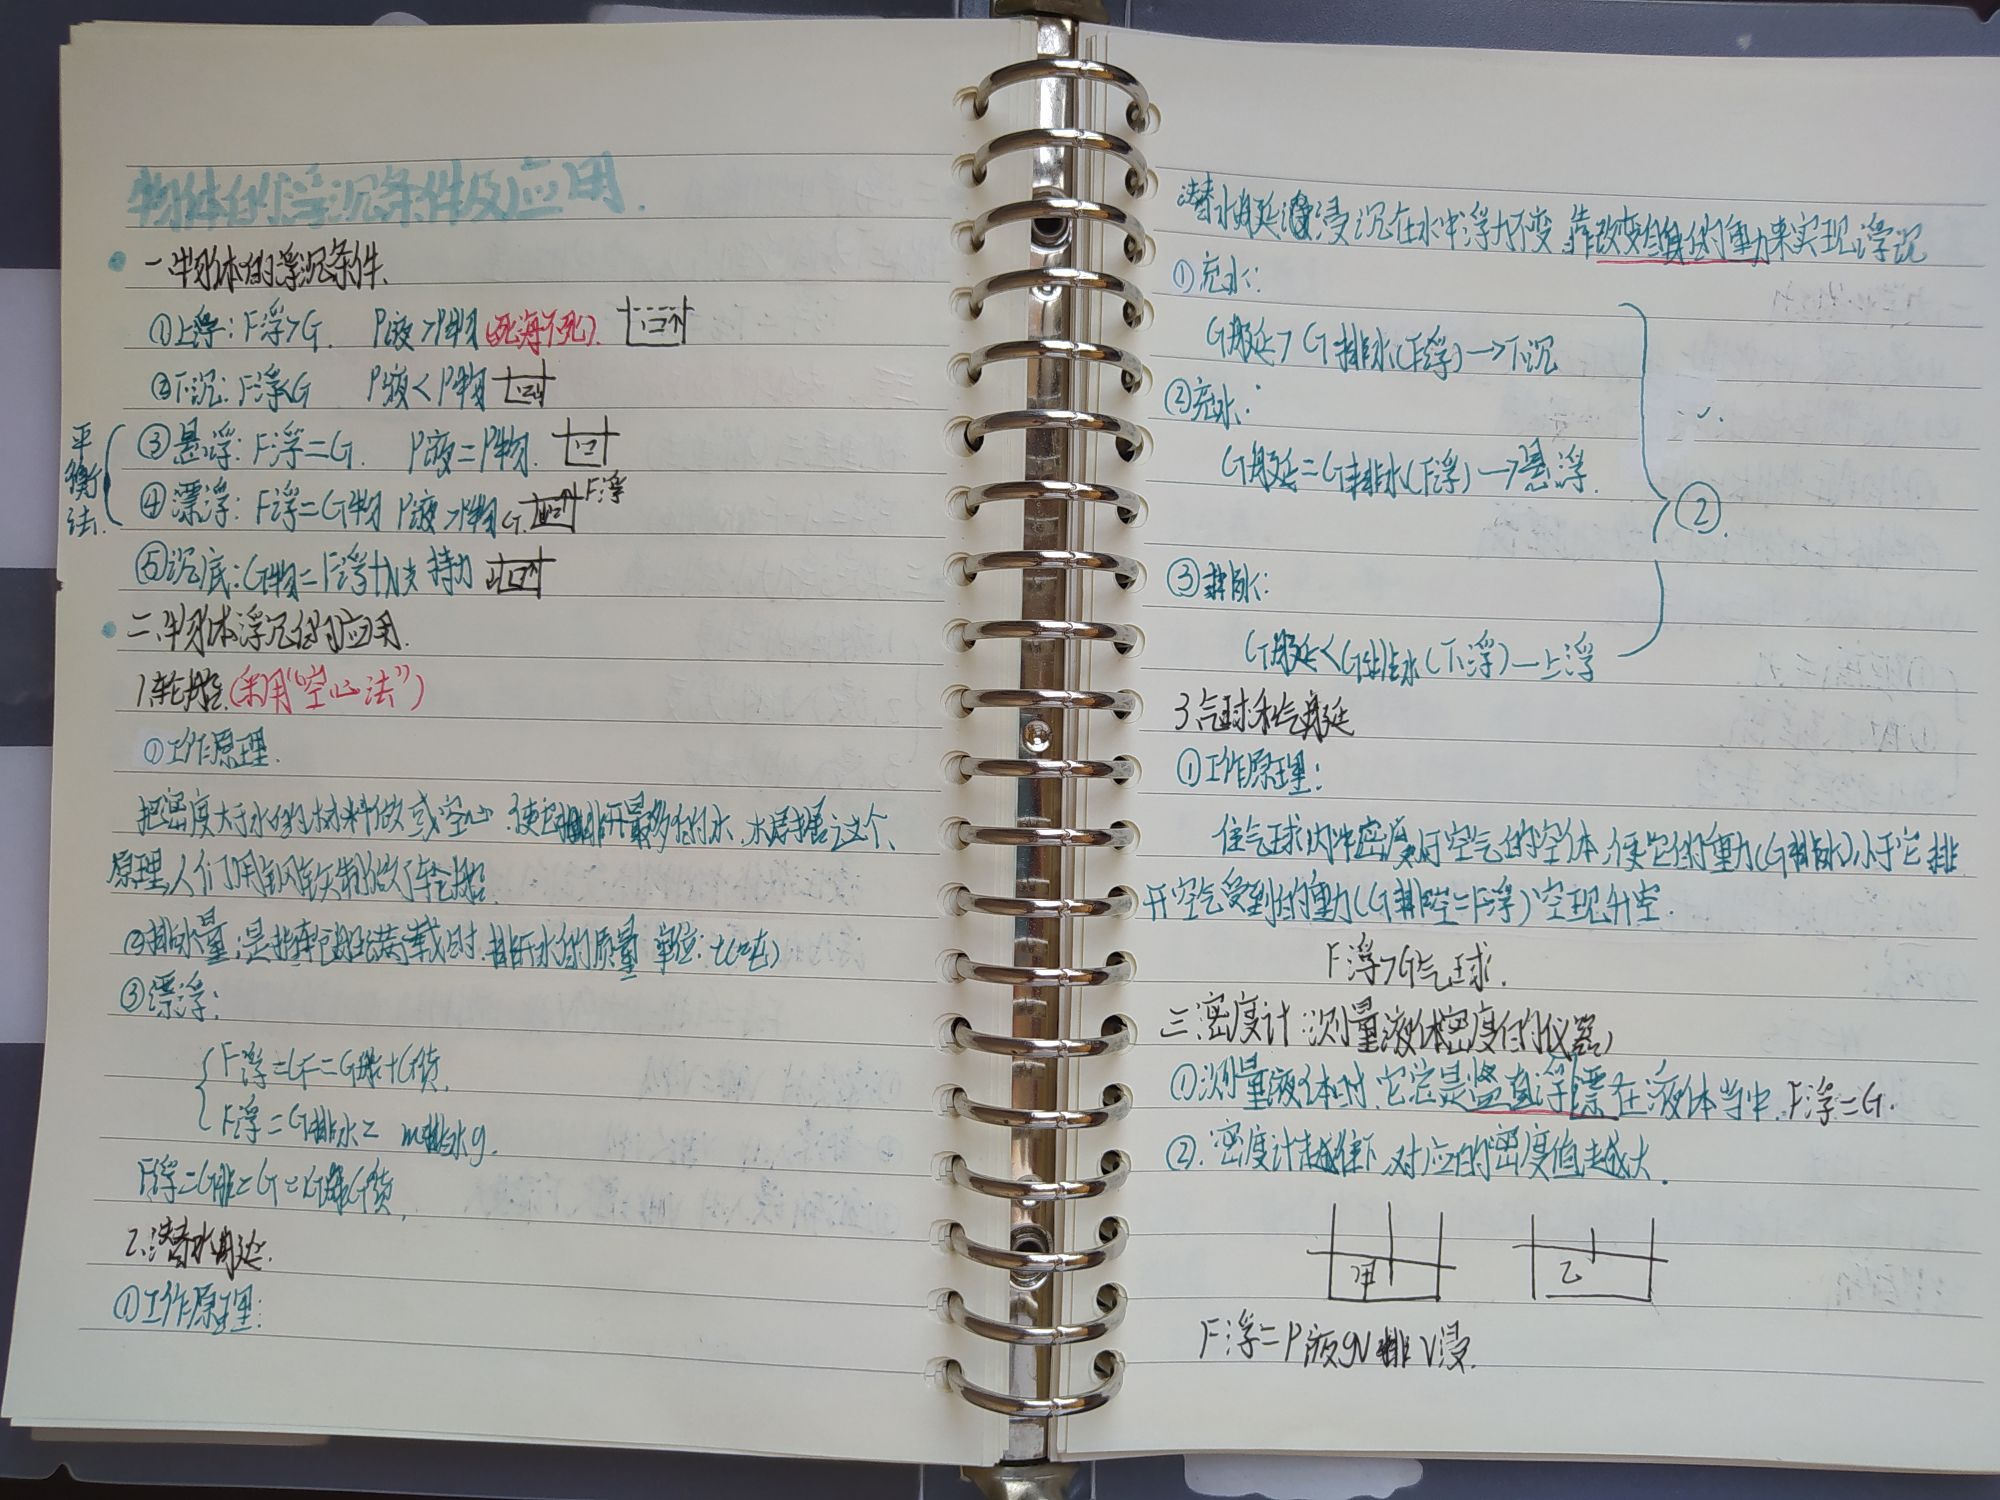 物体的浮沉条件及应用.
一.物体的浮沉条件.
①上浮: F浮>G. ρ液>ρ物(死海不死).
②下沉: F浮<G ρ液<ρ物
平衡法.
③悬浮: F浮=G. ρ液=ρ物.
④漂浮: F浮=G物 ρ液>ρ物 G. F浮
⑤沉底: G物=F浮+N支持力
二.物体浮沉的应用.
1.轮船.(采用"空心法")
①工作原理.
把密度大于水的材料做成空心.使它排开最多的水.水层据这个、
原理,人们用钢铁制做了轮船
②排水量,是指轮船满载时.排开水的质量 单位: t(吨)
③漂浮:
F浮=G=G船+G货.
F浮=G排水= m排水g.
F浮=G排=G=G船G货.
2.潜水艇.
①工作原理:
潜水艇浸沉在水中浮力不变,靠改变自身的重力来实现浮沉
①充水:
G艇>G排水(F浮)→下沉
②充水:
G艇=G排水(F浮)→悬浮.
②.
③排水:
G艇<G排水(F浮)—上浮
3.气球和气艇
①工作原理:
往气球内冲密度于空气的空体,使它的重力(G排水)小于它排
开空气受到的重力(G排空=F浮)空现升空.
F浮>G气球.
三.密度计:测量液体密度的仪器)
①测量液体时,它总是竖直浮漂在液体当中.F浮=G.
②.密度计越往下,对应的密度值越大.
甲 乙
F浮=ρ液gV排 V浸.